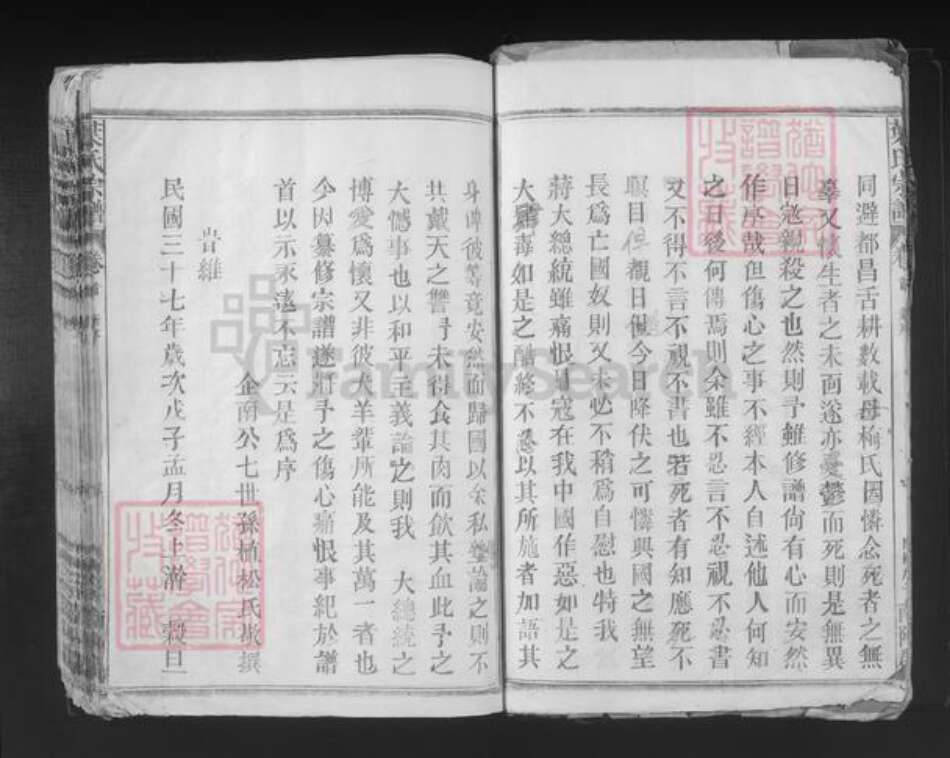 同避都昌舌耕數載母梅氏因憐念死者之無
辜又懷生者之未面遂亦憂鬱而死則是無異
日寇親殺之也然則予雖修譜尙有心而安然
作序哉但傷心之事不經本人自述他人何知
之日後何傳焉則余雖不忍言不忍視不忍書
又不得不言不視不書也若死者有知應死不
瞑目但觀日倭今日降伏之可憐興國之無望
長爲亡國奴則又未必不稍爲自慰也特我
蔣大總統雖痛恨日寇在我中國作惡如是之
大荼毒如是之酷終不忍以其所施者加諸其
身俾彼等竟安然而歸國以余私論之則不
共戴天之讐予未得食其肉而飲其血此予之
大憾事也以和平主義論之則我 大總統之
博愛爲懷又非彼犬羊輩所能及其萬一者也
今因纂修宗譜遂將予之傷心痛恨事紀於譜
首以示永遠不忘云是爲序
旹維
企南公七世孫植松氏敬撰
民國三十七年歲次戊子孟月冬上澣 穀旦
葉氏宗譜
卷
葉氏宗譜
卷
FamilySearch